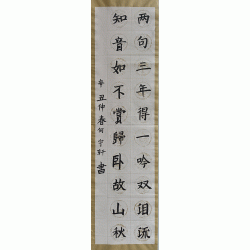 两句三年得一吟双泪流
知音如不赏归卧故山秋
辛丑仲春何宇轩书